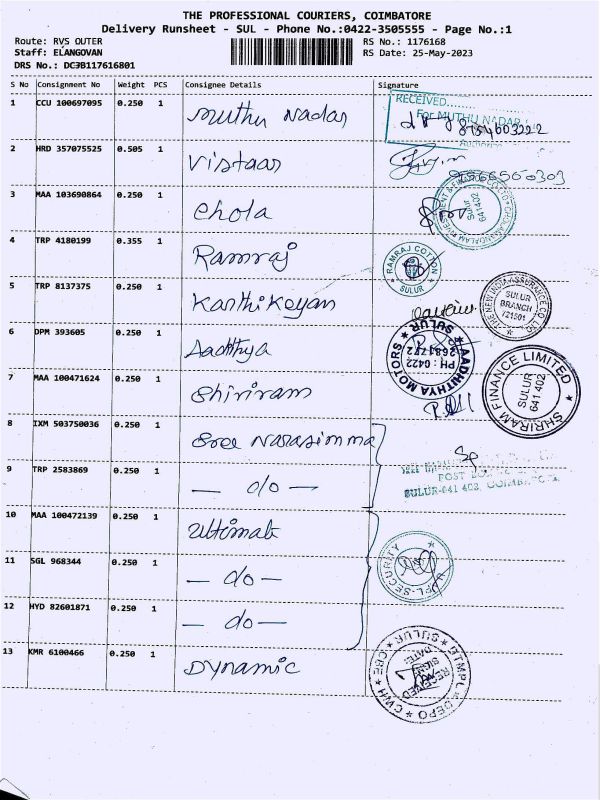 THE PROFESSIONAL COURIERS, COIMBATORE
Delivery Runsheet - SUL - Phone No.:0422-3505555 - Page No.:1
Route: RVS OUTER
Staff: ELANGOVAN
DRS No.: DC3B117616801
RS No.: 1176168
RS Date: 25-May-2023
S No Consignment No Weight PCS Consignee Details Signature
1 CCU 100697095 0.250 1 Muthu Nadar
RECEIVED........
For MUTHU NADAR
2 HRD 357075525 0.505 1 Vistaar
3 MAA 103690864 0.250 1 Chola
641402
4 TRP 4180199 0.355 1 Ramraj
RAMRAJ COTTON
SULUR
5 TRP 8137375 0.250 1 Karthikeyan
THE NEW INDIA ASSURANCE CO. LTD.
SULUR
BRANCH
721501
6 DPM 393605 0.250 1 Aadthya
AADHITHYA MOTORS
SULUR
PH : 0422
2681772
7 MAA 100471624 0.250 1 Shriram
SHRIRAM FINANCE LIMITED
SULUR
641 402
8 IXM 503750036 0.250 1 Sree Narasimma
9 TRP 2583869 0.250 1 — do —
SULUR-641 402, COIMBATORE
10 MAA 100472139 0.250 1 Ultimate
11 SGL 968344 0.250 1 — do —
UPL-SECURITY
12 HYD 82601871 0.250 1 — do —
13 KMR 6100466 0.250 1 Dynamic
DTMPL DEPO
CWH CBE
SULUR
RECEIVED
SIGN:
DATE: